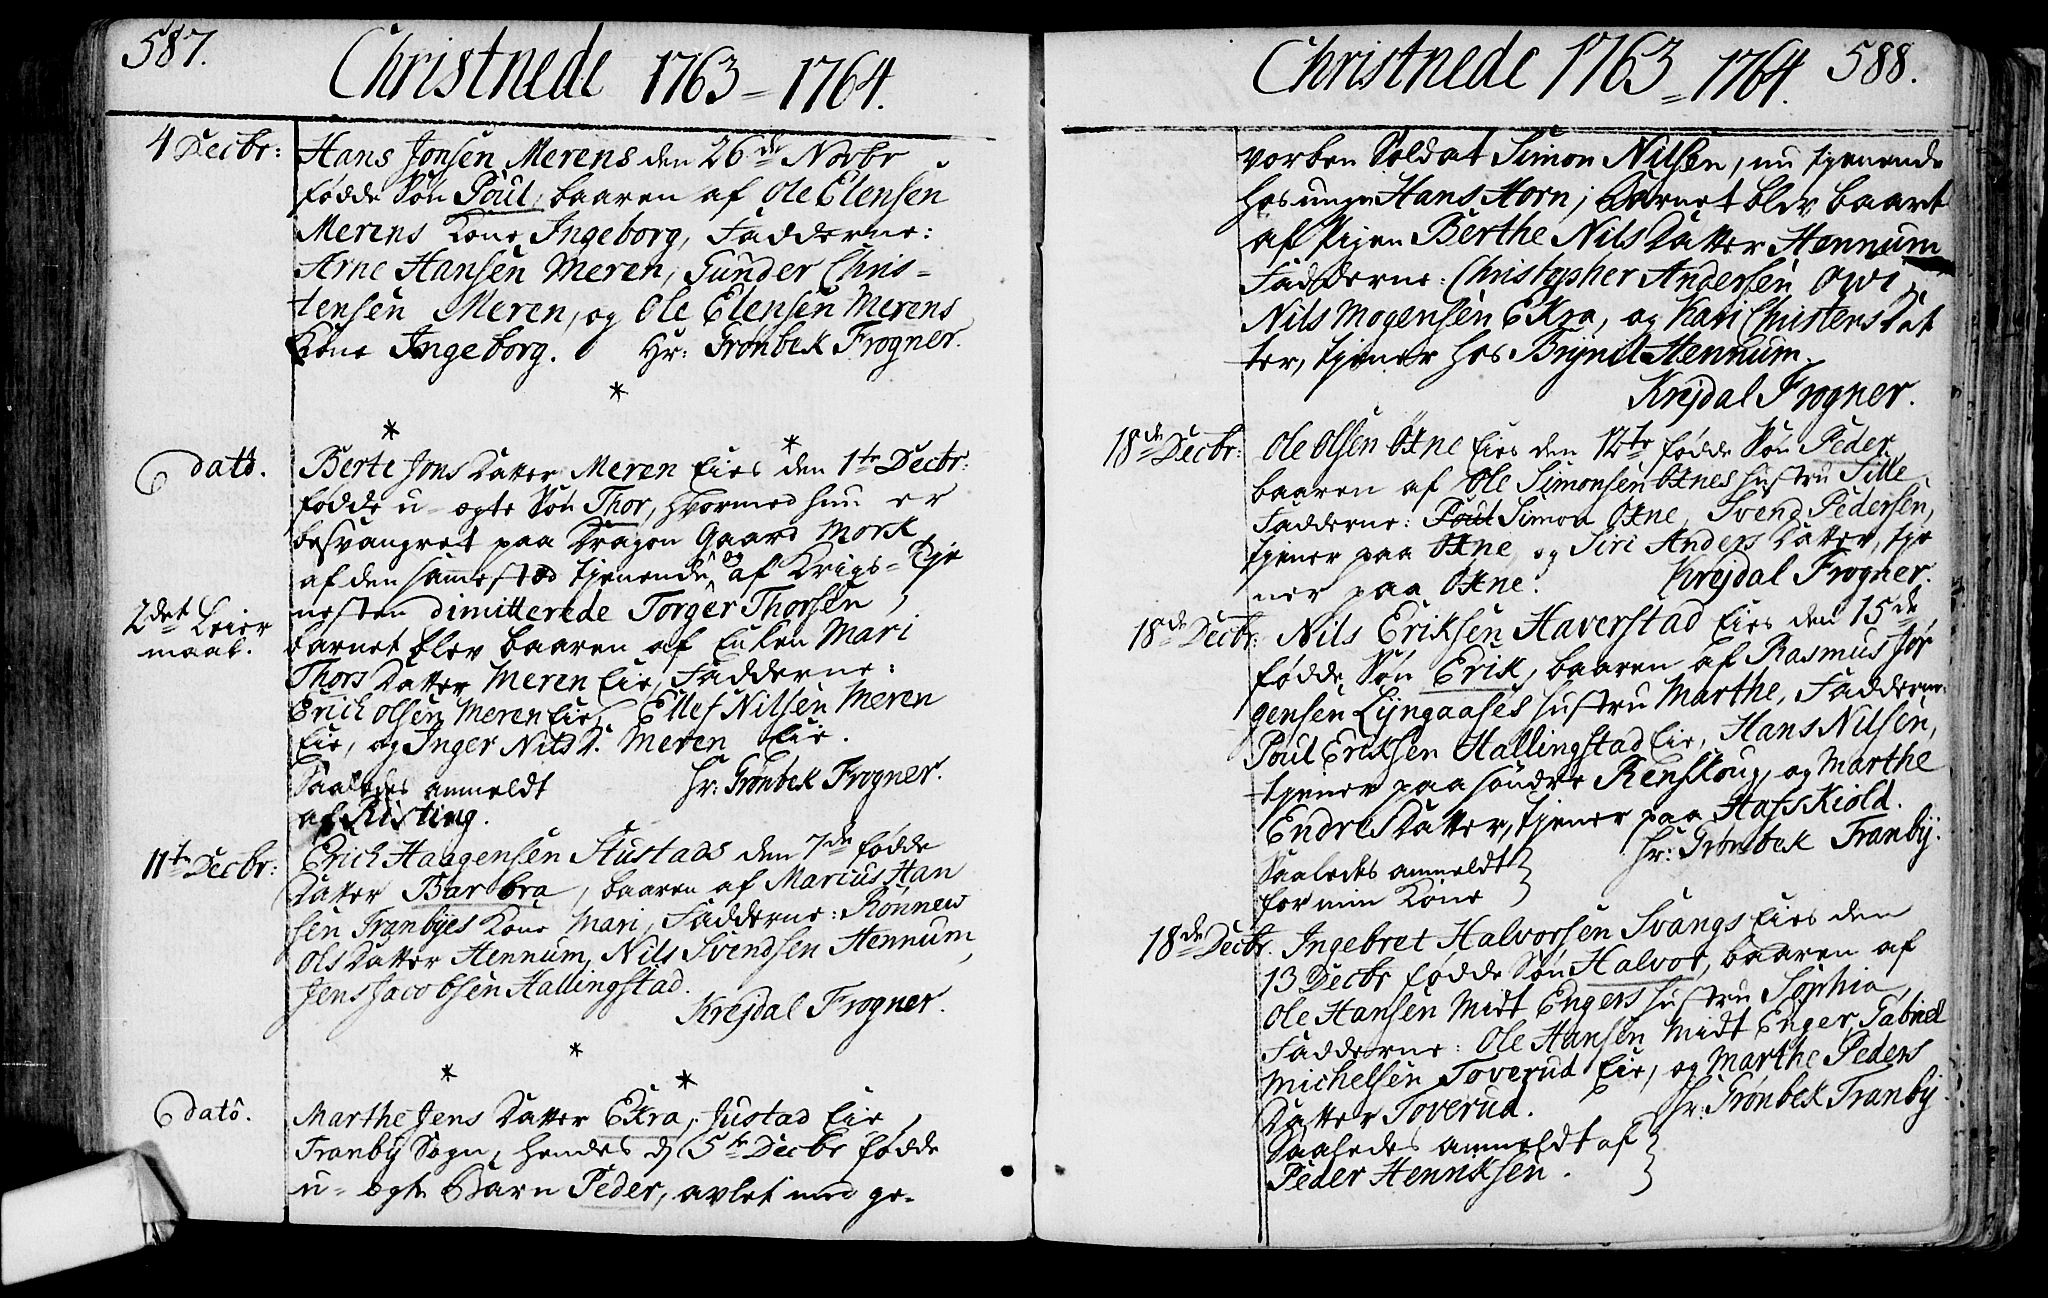 587.
Christnede 1763-1764.
4 Decbr:
Hans Jonsen Merens den 26de Novbr
fødde Søn Poul, baaren af Ole Elensen
Merens Kone Ingeborg, Fadderne:
Arne Hansen Meren, Gunder Chris-
tensen Meren, og Ole Elensen Merens
Kone Ingeborg. Hr: Grønbek Frogner.
*
*
*
dato.
Berte Jons Datter Meren Eies den 1te Decbr:
fødde u-ægte Søn Thor, hvormed hun er
besvangret paa Dragon Gaard Mork
af den sammested tjenende, og af Krigs-Tje
2det Leier
maal.
nesten dimitterede Torger Thorsen,
barnet blev baaren af Enken Mari
Thors Datter Meren Eie, Fadderne:
Erich Olsen Meren Eie, Ellef Nilsen Meren
Eie, og Inger Nils D. Meren Eie.
Saaledes anmeldt Hr: Grønbek Frogner.
af Risting.
11te Decbr:
Erich Haagensen Stustads den 7de fødde
Datter Barbra, baaren af Marcus Han
sen Tranbyes Kone Mari, Fadderne: Rønnew
Ols Datter Hennum, Nils Svendsen Hennum,
Jens Jacobsen Hallingstad.
Krejdal Frogner.
*
*
*
dato.
Marthe Jens Datter Ekra, Justad Eie,
Tranby Sogn, hendes d 5te Decbr fødde
u-ægte Barn Peder, avlet med ge-
Christnede 1763-1764. 588.
vorben Soldat Simon Nilsen, nu tjenende
hos unge Hans Horn; Barnet blev baaret
af Pigen Berthe Nils Datter Hennum
Fadderne: Christopher Andersen Owi,
Nils Mogensen Ekra, og Kari Christens Dat
ter, tjener hos Brynil Hennum.
Krejdal Frogner.
18de Decbr:
Ole Olsen Oxne Eies den 12te fødde Søn Peder
baaren af Ole Simonsen Oxnes Hustru Sille
Fadderne: Poul Simon Oxne, Svend Pedersen,
tjener paa Oxne, og Siri Anders Datter, tje
ner paa Oxne. Krejdal Frogner.
18de Decbr:
Nils Eriksen Haverstad Eies den 15de
fødde Søn Erik, baaren af Rasmus Jør
gensen Lyngaases Hustru Marthe, Fadderne:
Poul Eriksen Hallingstad Eie, Hans Nilsen,
tjener paa søndre Renskoug, og Marthe
Endres Datter, tjener paa Hasskiold.
Saaledes anmeldt Hr: Grønbek Tranby.
for min Kone
18de Decbr.
Ingebret Halvorsen Svangs Eies den
13 Decbr fødde Søn Halvor, baaren af
Ole Hansen Midt Engers Hustru Sophia,
Fadderne: Ole Hansen Midt Enger, Gabriel
Michelsen Toverud Eie, og Marthe Peders
Datter Toverud. Hr: Grønbek Tranby.
Saaledes anmeldt af
Peder Henriksen.